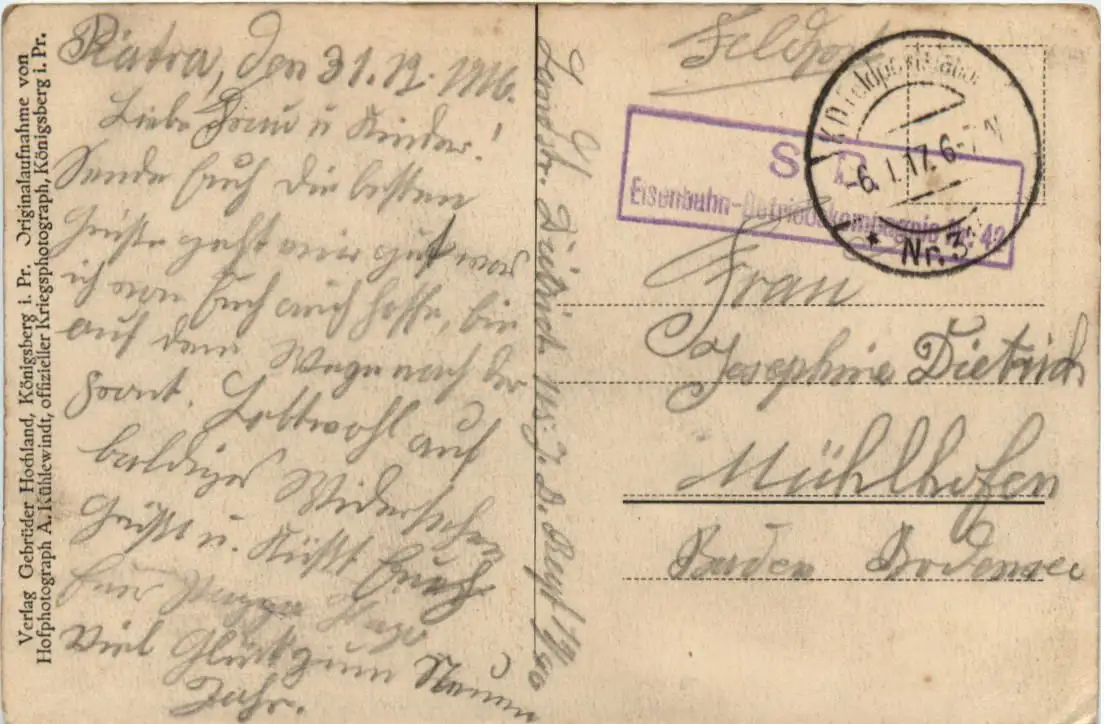 Verlag Gebrüder Hochland, Königsberg i. Pr. Originalaufnahme von
Hofphotograph A. Kühlewindt, offizieller Kriegsphotograph, Königsberg i. Pr.
Piatra, den 31. 12. 1916.
Liebe Frau u Kinder!
Sende Euch die besten
Grüße geht mir gut was
ich von Euch auch hoffe, bin
auf dem Wege nach der
Front. Lebtwohl auf
baldiges Widersehen
Grüßt u. Küßt Euch
Euer Pappa
Viel Glück zum Neuen
Jahr.
Dietrich
Feldpost
K.D. Feldpoststation
-6. 1. 17. 6-7 N
* Nr. 3
S. B.
Eisenbahn-Betriebskompagnie Nr. 42
Frau
Josephine Dietrich
Mühlhofen
Baden Bodensee